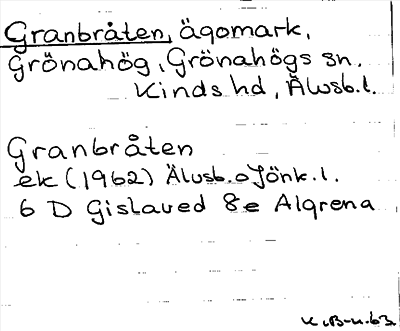 Granbråten, ägomark,
Grönahög, Grönahögs sn.
Kinds hd, Älvsb. l.
Granbråten
ek (1962) Älvsb. o Jönk. l.
6 D Gislaved 8e Algrena